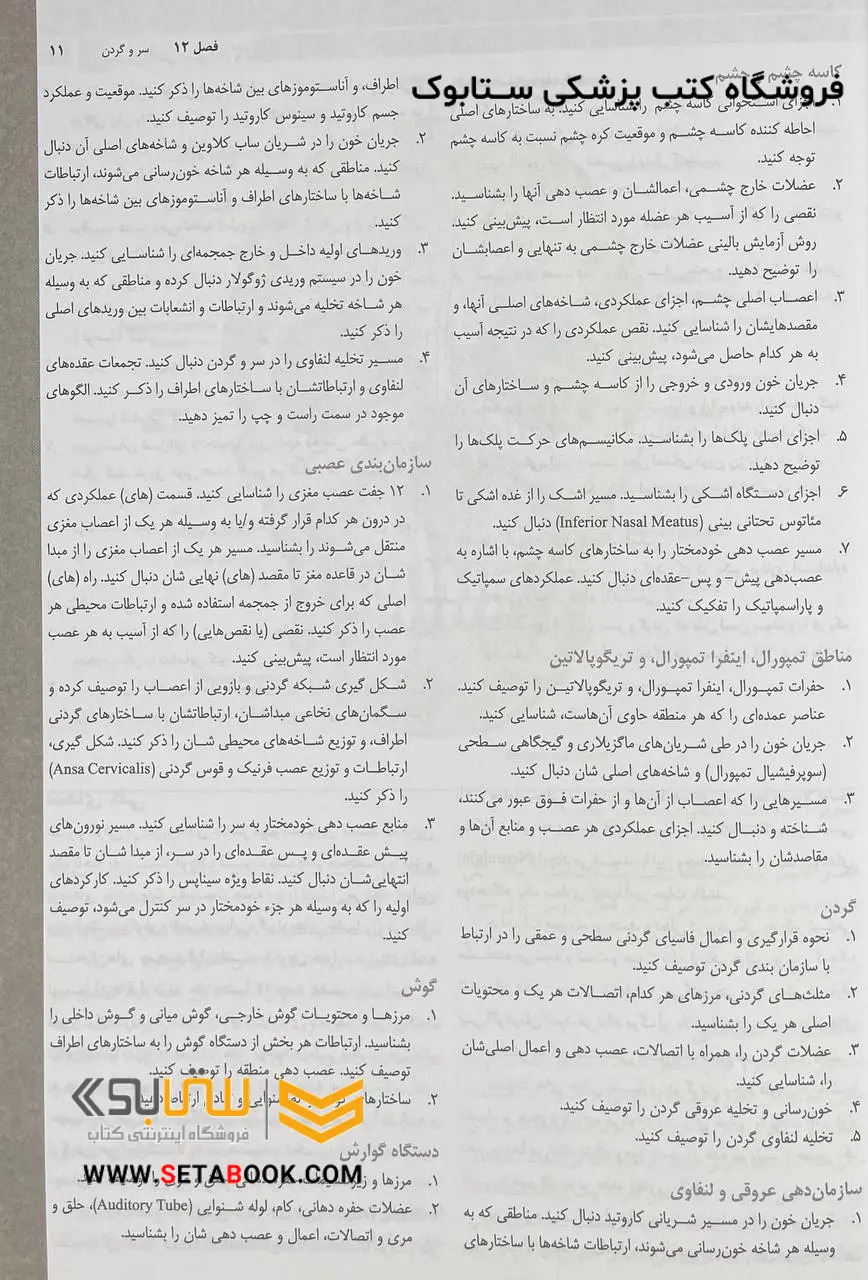 فصل ۱۲ سر و گردن ۱۱
کاسه چشم و چشم
فروشگاه کتب پزشکی ستابوک
۱. اجزای استخوانی کاسه چشم را شناسایی کنید. به ساختارهای اصلی
احاطه کننده کاسه چشم و موقعیت کره چشم نسبت به کاسه چشم
توجه کنید.
۲. عضلات خارج چشمی، اعمالشان و عصب دهی آنها را بشناسید.
نقصی را که از آسیب هر عضله مورد انتظار است، پیش‌بینی کنید.
روش آزمایش بالینی عضلات خارج چشمی به تنهایی و اعصابشان
را توضیح دهید.
۳. اعصاب اصلی چشم، اجزای عملکردی، شاخه‌های اصلی آنها، و
مقصدهایشان را شناسایی کنید. نقص عملکردی را که در نتیجه آسیب
به هر کدام حاصل می‌شود، پیش‌بینی کنید.
۴. جریان خون ورودی و خروجی را از کاسه چشم و ساختارهای آن
دنبال کنید.
۵. اجزای اصلی پلک‌ها را بشناسید. مکانیسم‌های حرکت پلک‌ها را
توضیح دهید.
۶. اجزای دستگاه اشکی را بشناسید. مسیر اشک را از غده اشکی تا
مئاتوس تحتانی بینی (Inferior Nasal Meatus) دنبال کنید.
۷. مسیر عصب دهی خودمختار را به ساختارهای کاسه چشم، با اشاره به
عصب‌دهی پیش- و پس-عقده‌ای دنبال کنید. عملکردهای سمپاتیک
و پاراسمپاتیک را تفکیک کنید.
مناطق تمپورال، اینفرا تمپورال، و تریگوپالاتین
۱. حفرات تمپورال، اینفرا تمپورال، و تریگوپالاتین را توصیف کنید.
عناصر عمده‌ای را که هر منطقه حاوی آن‌هاست، شناسایی کنید.
۲. جریان خون را در طی شریان‌های ماگزیلاری و گیجگاهی سطحی
(سوپرفیشیال تمپورال) و شاخه‌های اصلی شان دنبال کنید.
۳. مسیرهایی را که اعصاب از آن‌ها و از حفرات فوق عبور می‌کنند،
شناخته و دنبال کنید. اجزای عملکردی هر عصب و منابع آن‌ها و
مقاصدشان را بشناسید.
گردن
۱. نحوه قرارگیری و اعمال فاسیای گردنی سطحی و عمقی را در ارتباط
با سازمان بندی گردن توصیف کنید.
۲. مثلث‌های گردنی، مرزهای هر کدام، اتصالات هر یک و محتویات
اصلی هر یک را بشناسید.
۳. عضلات گردن را، همراه با اتصالات، عصب دهی و اعمال اصلی‌شان
را، شناسایی کنید.
۴. خون‌رسانی و تخلیه عروقی گردن را توصیف کنید.
۵. تخلیه لنفاوی گردن را توصیف کنید.
سازمان‌دهی عروقی و لنفاوی
۱. جریان خون را در مسیر شریانی کاروتید دنبال کنید. مناطقی که به
وسیله هر شاخه خون‌رسانی می‌شوند، ارتباطات شاخه‌ها با ساختارهای
اطراف، و آناستوموزهای بین شاخه‌ها را ذکر کنید. موقعیت و عملکرد
جسم کاروتید و سینوس کاروتید را توصیف کنید.
۲. جریان خون را در شریان ساب کلاوین و شاخه‌های اصلی آن دنبال
کنید. مناطقی که به وسیله هر شاخه خون‌رسانی می‌شوند، ارتباطات
شاخه‌ها با ساختارهای اطراف و آناستوموزهای بین شاخه‌ها را ذکر
کنید.
۳. وریدهای اولیه داخل و خارج جمجمه‌ای را شناسایی کنید. جریان
خون را در سیستم وریدی ژوگولار دنبال کرده و مناطقی که به وسیله
هر شاخه تخلیه می‌شوند و ارتباطات و انشعابات بین وریدهای اصلی
را ذکر کنید.
۴. مسیر تخلیه لنفاوی را در سر و گردن دنبال کنید. تجمعات عقده‌های
لنفاوی و ارتباطاتشان با ساختارهای اطراف را ذکر کنید. الگوهای
موجود در سمت راست و چپ را تمیز دهید.
سازمان‌بندی عصبی
۱. ۱۲ جفت عصب مغزی را شناسایی کنید. قسمت (های) عملکردی که
در درون هر کدام قرار گرفته و/یا به وسیله هر یک از اعصاب مغزی
منتقل می‌شوند را بشناسید. مسیر هر یک از اعصاب مغزی را از مبدا
شان در قاعده مغز تا مقصد (های) نهایی شان دنبال کنید. راه (های)
اصلی که برای خروج از جمجمه استفاده شده و ارتباطات محیطی هر
عصب را ذکر کنید. نقصی (یا نقص‌هایی) را که از آسیب به هر عصب
مورد انتظار است، پیش‌بینی کنید.
۲. شکل گیری شبکه گردنی و بازویی از اعصاب را توصیف کرده و
سگمان‌های نخاعی مبداشان، ارتباطاتشان با ساختارهای گردنی
اطراف، و توزیع شاخه‌های محیطی شان را ذکر کنید. شکل گیری،
ارتباطات و توزیع عصب فرنیک و قوس گردنی (Ansa Cervicalis)
را ذکر کنید.
۳. منابع عصب دهی خودمختار به سر را شناسایی کنید. مسیر نورون‌های
پیش عقده‌ای و پس عقده‌ای را در سر، از مبدا شان تا مقصد
انتهایی‌شان دنبال کنید. نقاط ویژه سیناپس را ذکر کنید. کارکردهای
اولیه را که به وسیله هر جزء خودمختار در سر کنترل می‌شود، توصیف
کنید.
گوش
۱. مرزها و محتویات گوش خارجی، گوش میانی و گوش داخلی را
بشناسید. ارتباطات هر بخش از دستگاه گوش را به ساختارهای اطراف
توصیف کنید. عصب دهی منطقه را توصیف کنید.
۲. ساختارهای شنوایی و تعادل ارتباط دهید.
ستابوک
فروشگاه اینترنتی کتاب
دستگاه گوارش
WWW.SETABOOK.COM
۱. مرزها و
۲. عضلات حفره دهانی، کام، لوله شنوایی (Auditory Tube)، حلق و
مری و اتصالات، اعمال و عصب دهی شان را بشناسید.